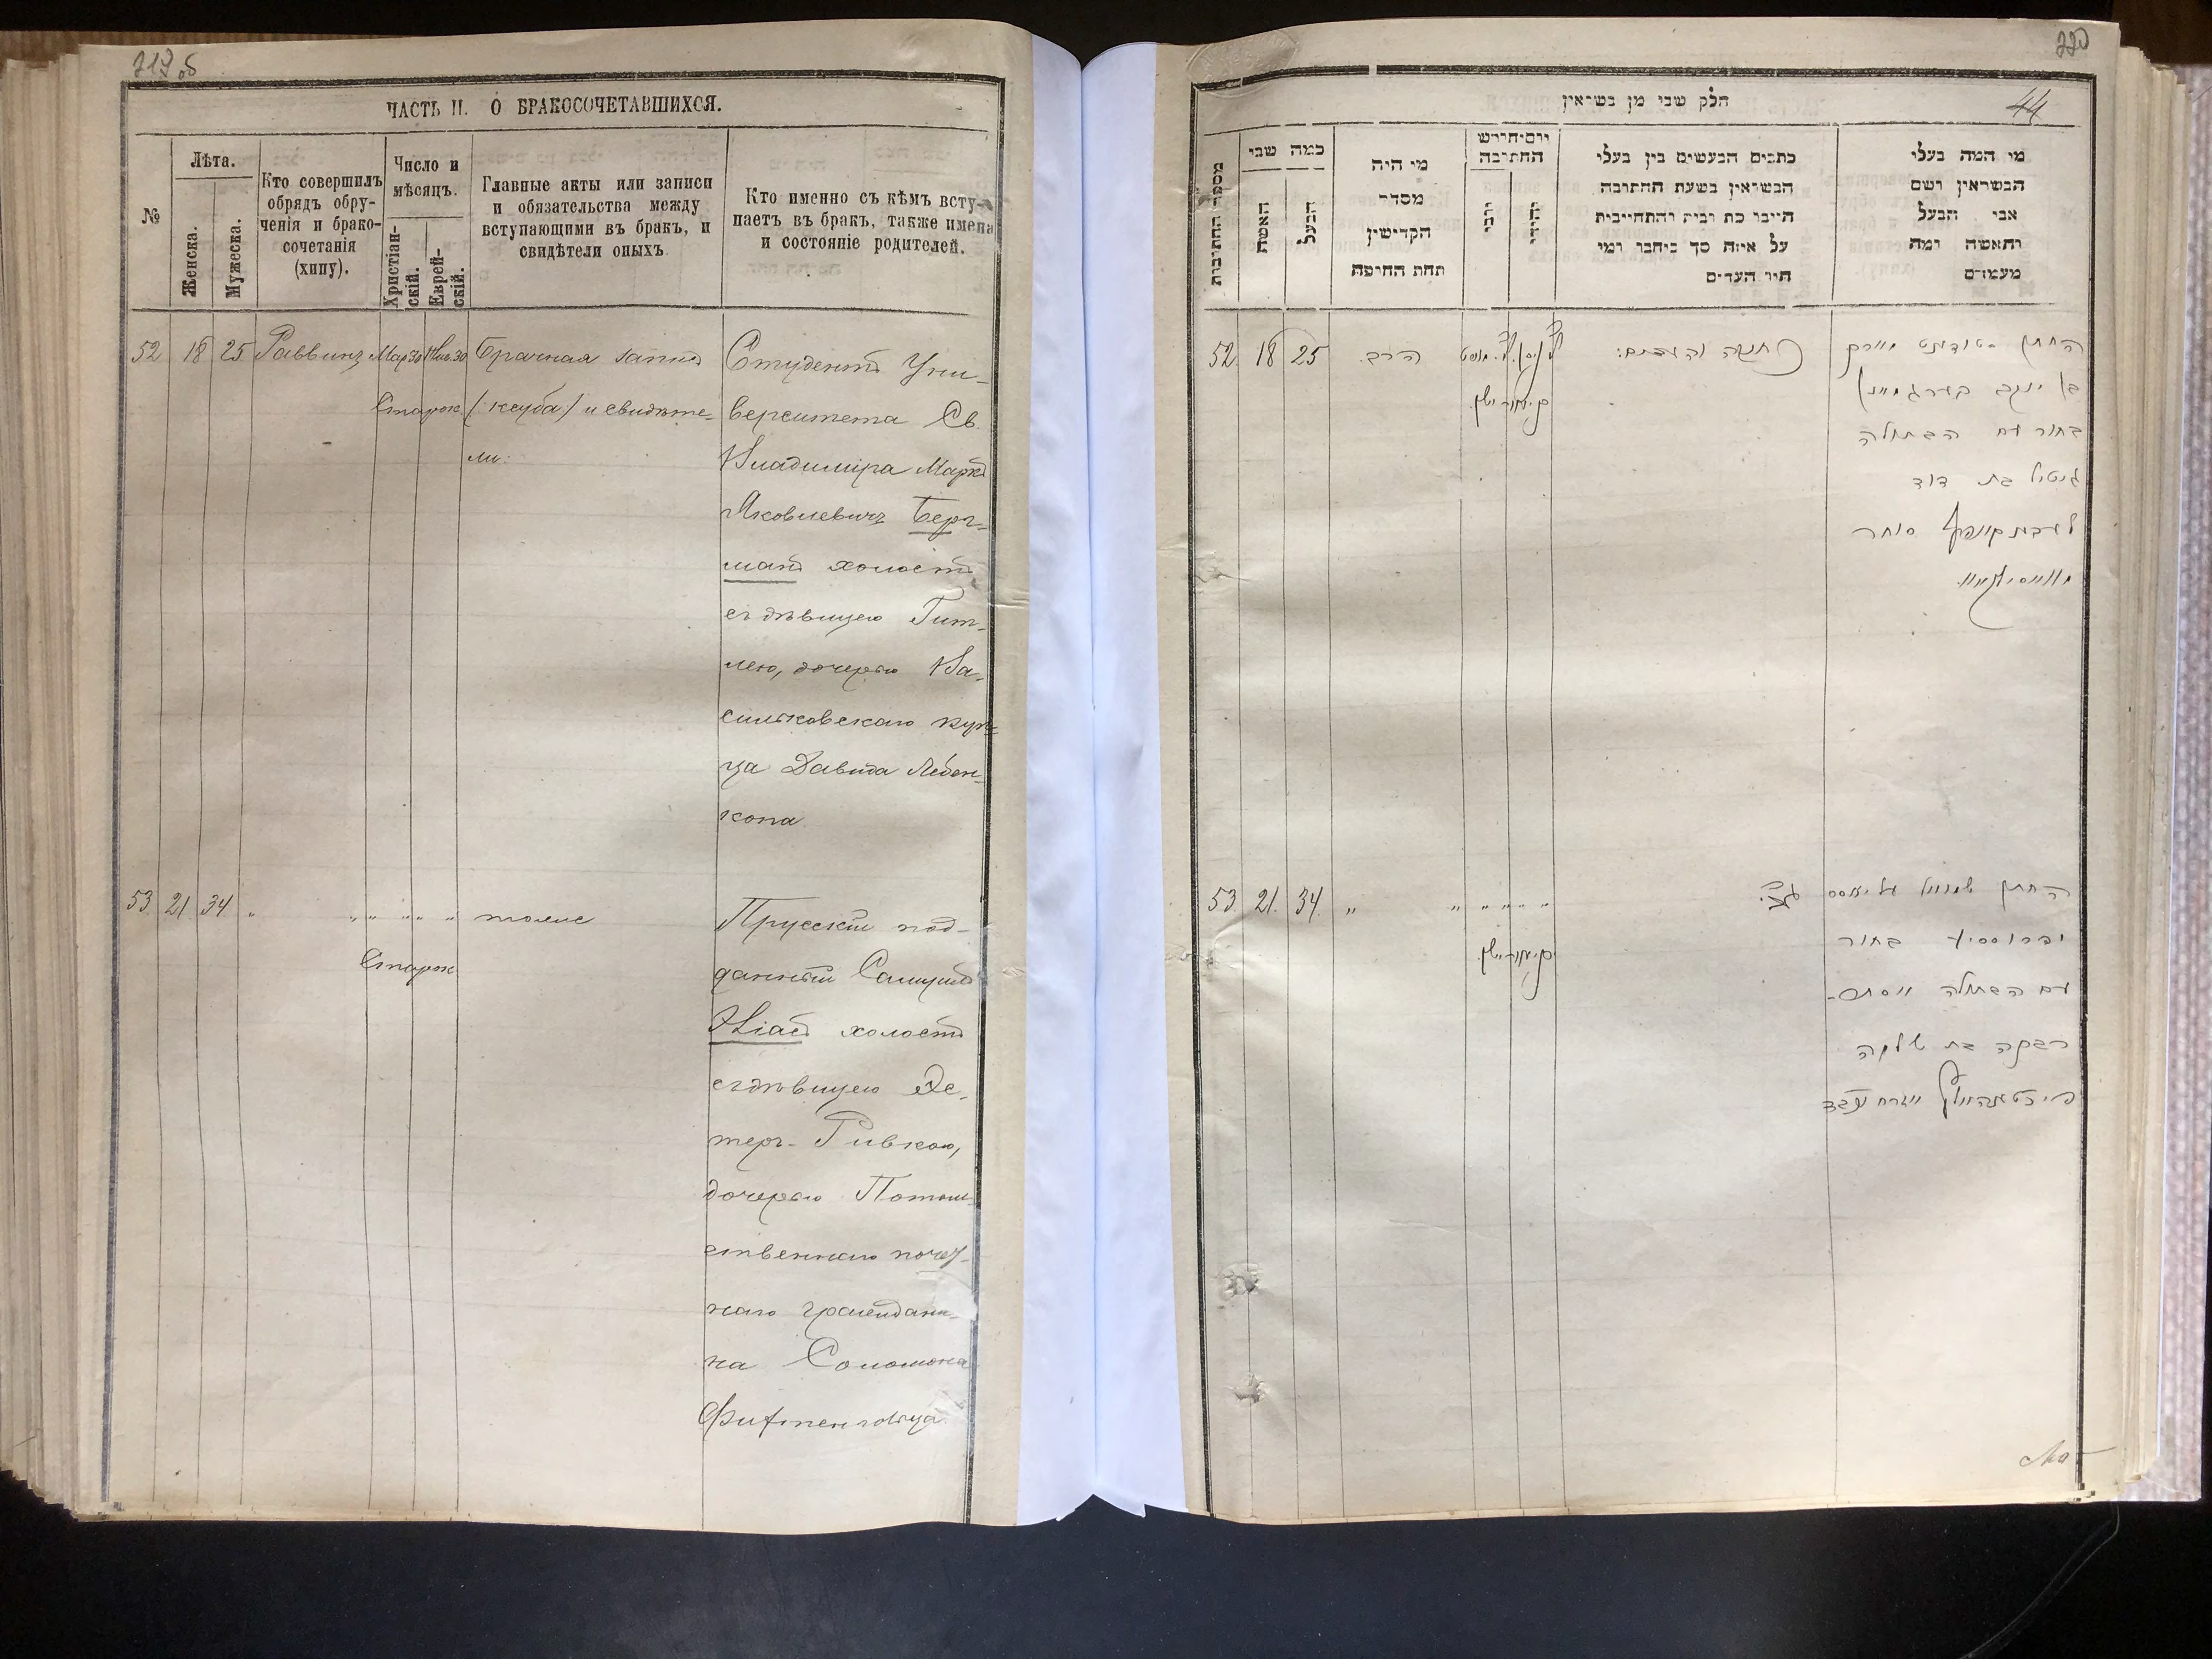 219 об
ЧАСТЬ II. О БРАКОСОЧЕТАВШИХСЯ.
№
Лѣта.
Женска.
Мужеска.
Кто совершилъ
обрядъ обру-
ченія и брако-
сочетанія
(хипу).
Число и
мѣсяцъ.
Христіан-
скій.
Еврей-
скій.
Главные акты или записи
и обязательства между
вступающими въ бракъ, и
свидѣтели оныхъ
Кто именно съ кѣмъ всту-
паетъ въ бракъ, также имена
и состояніе родителей.
52 18 25 Раввинъ Мар. 30 30 Брачная запись
(кеуба) и свидѣте-
ли:
Студентъ Уни-
верситета Св.
Владиміра Маркъ
Яковлевичъ Берг-
манъ холостъ
съ дѣвицею Гит-
лею, дочерью Ва-
сильковскаго куп-
ца Давида Лебен-
копа
53. 21. 34. " " " " " " тоже
Прусскій под-
данный Самуилъ
холостъ
съ дѣвицею Эс-
терь-Ривкою,
дочерью Потом-
ственнаго почет-
наго гражданина
на Соломона
220
44
חלק שני מן נשואין
מספר החתונות
כמה שני
האשה
הבעל
מי היה
מסדר
הקדישין
תחת החיפה
יום וחודש
החתונה
כתבים הנעשים בין בעלי
הנשואין בשעת החתונה
היינו כת ובית והתחייבית
על איזה סך כיחבו ומי
היו העדים
מי המה בעלי
הנשואין ושם
אבי הבעל
והאשה ומה
מעמדם
52. 18 25 הרב
החתן סטודענט מארק
בן יעקב בערגמאן
בחור עם הבתולה
גיטיל בת דוד
סוחר
53. 21. 34. " " " " "
החתן שמואל
בחור
עם הבתולה אסתר-
רבקה בת שלמה